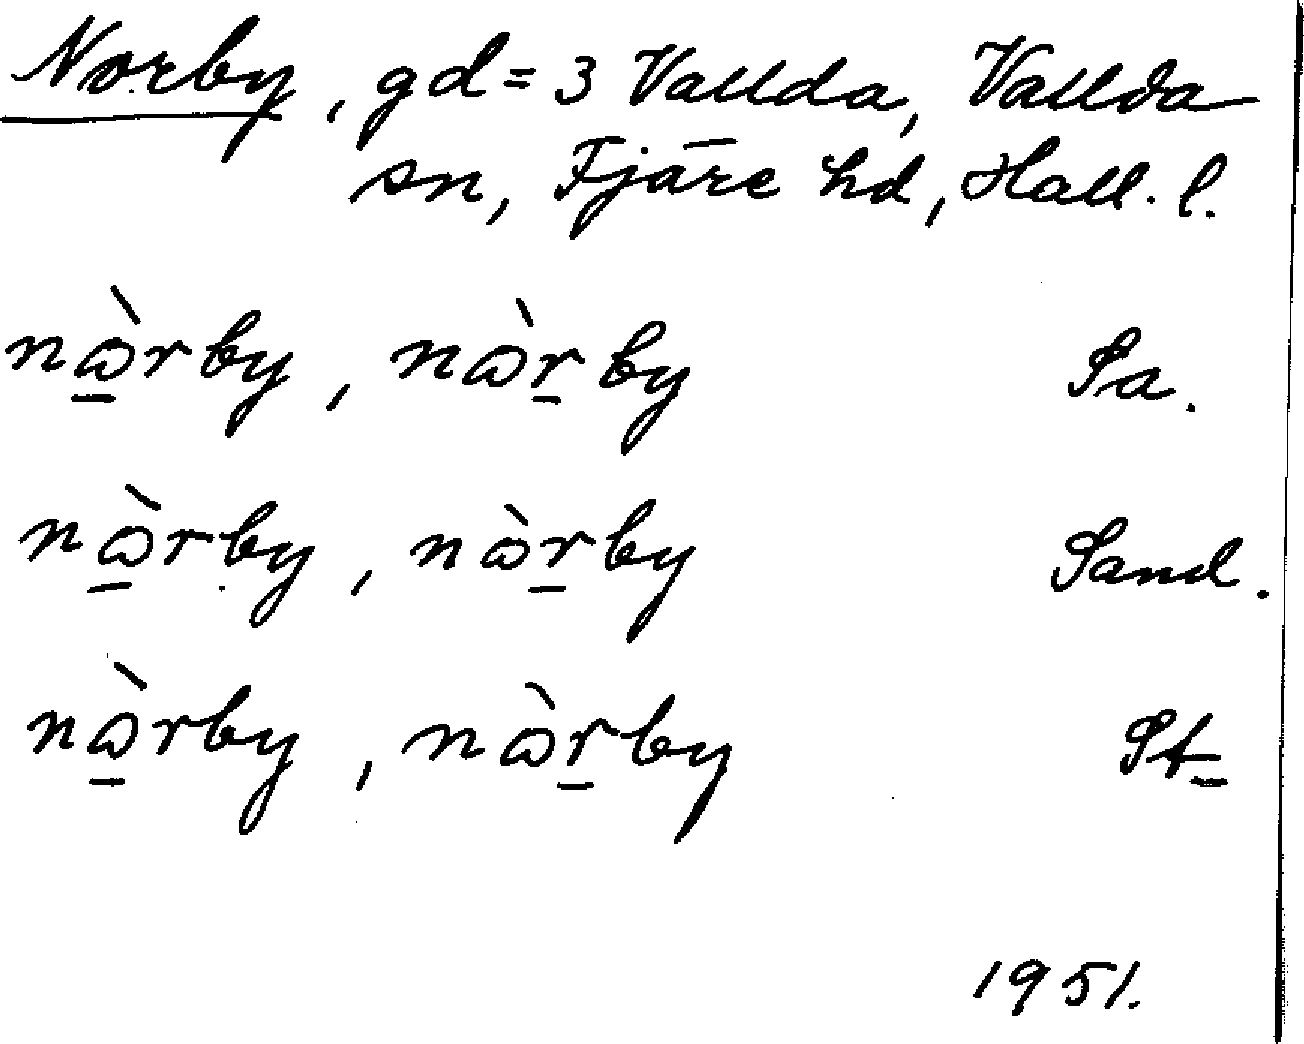 Norby, gd = 3 Vallda, Vallda
sn, Fjäre hd, Hall. l.
nɷ̱̀rby, nɷ̀ṟby Sa.
nɷ̱̀rby, nɷ̀ṟby Sand.
nɷ̱̀rby, nɷ̀ṟby St
1951.